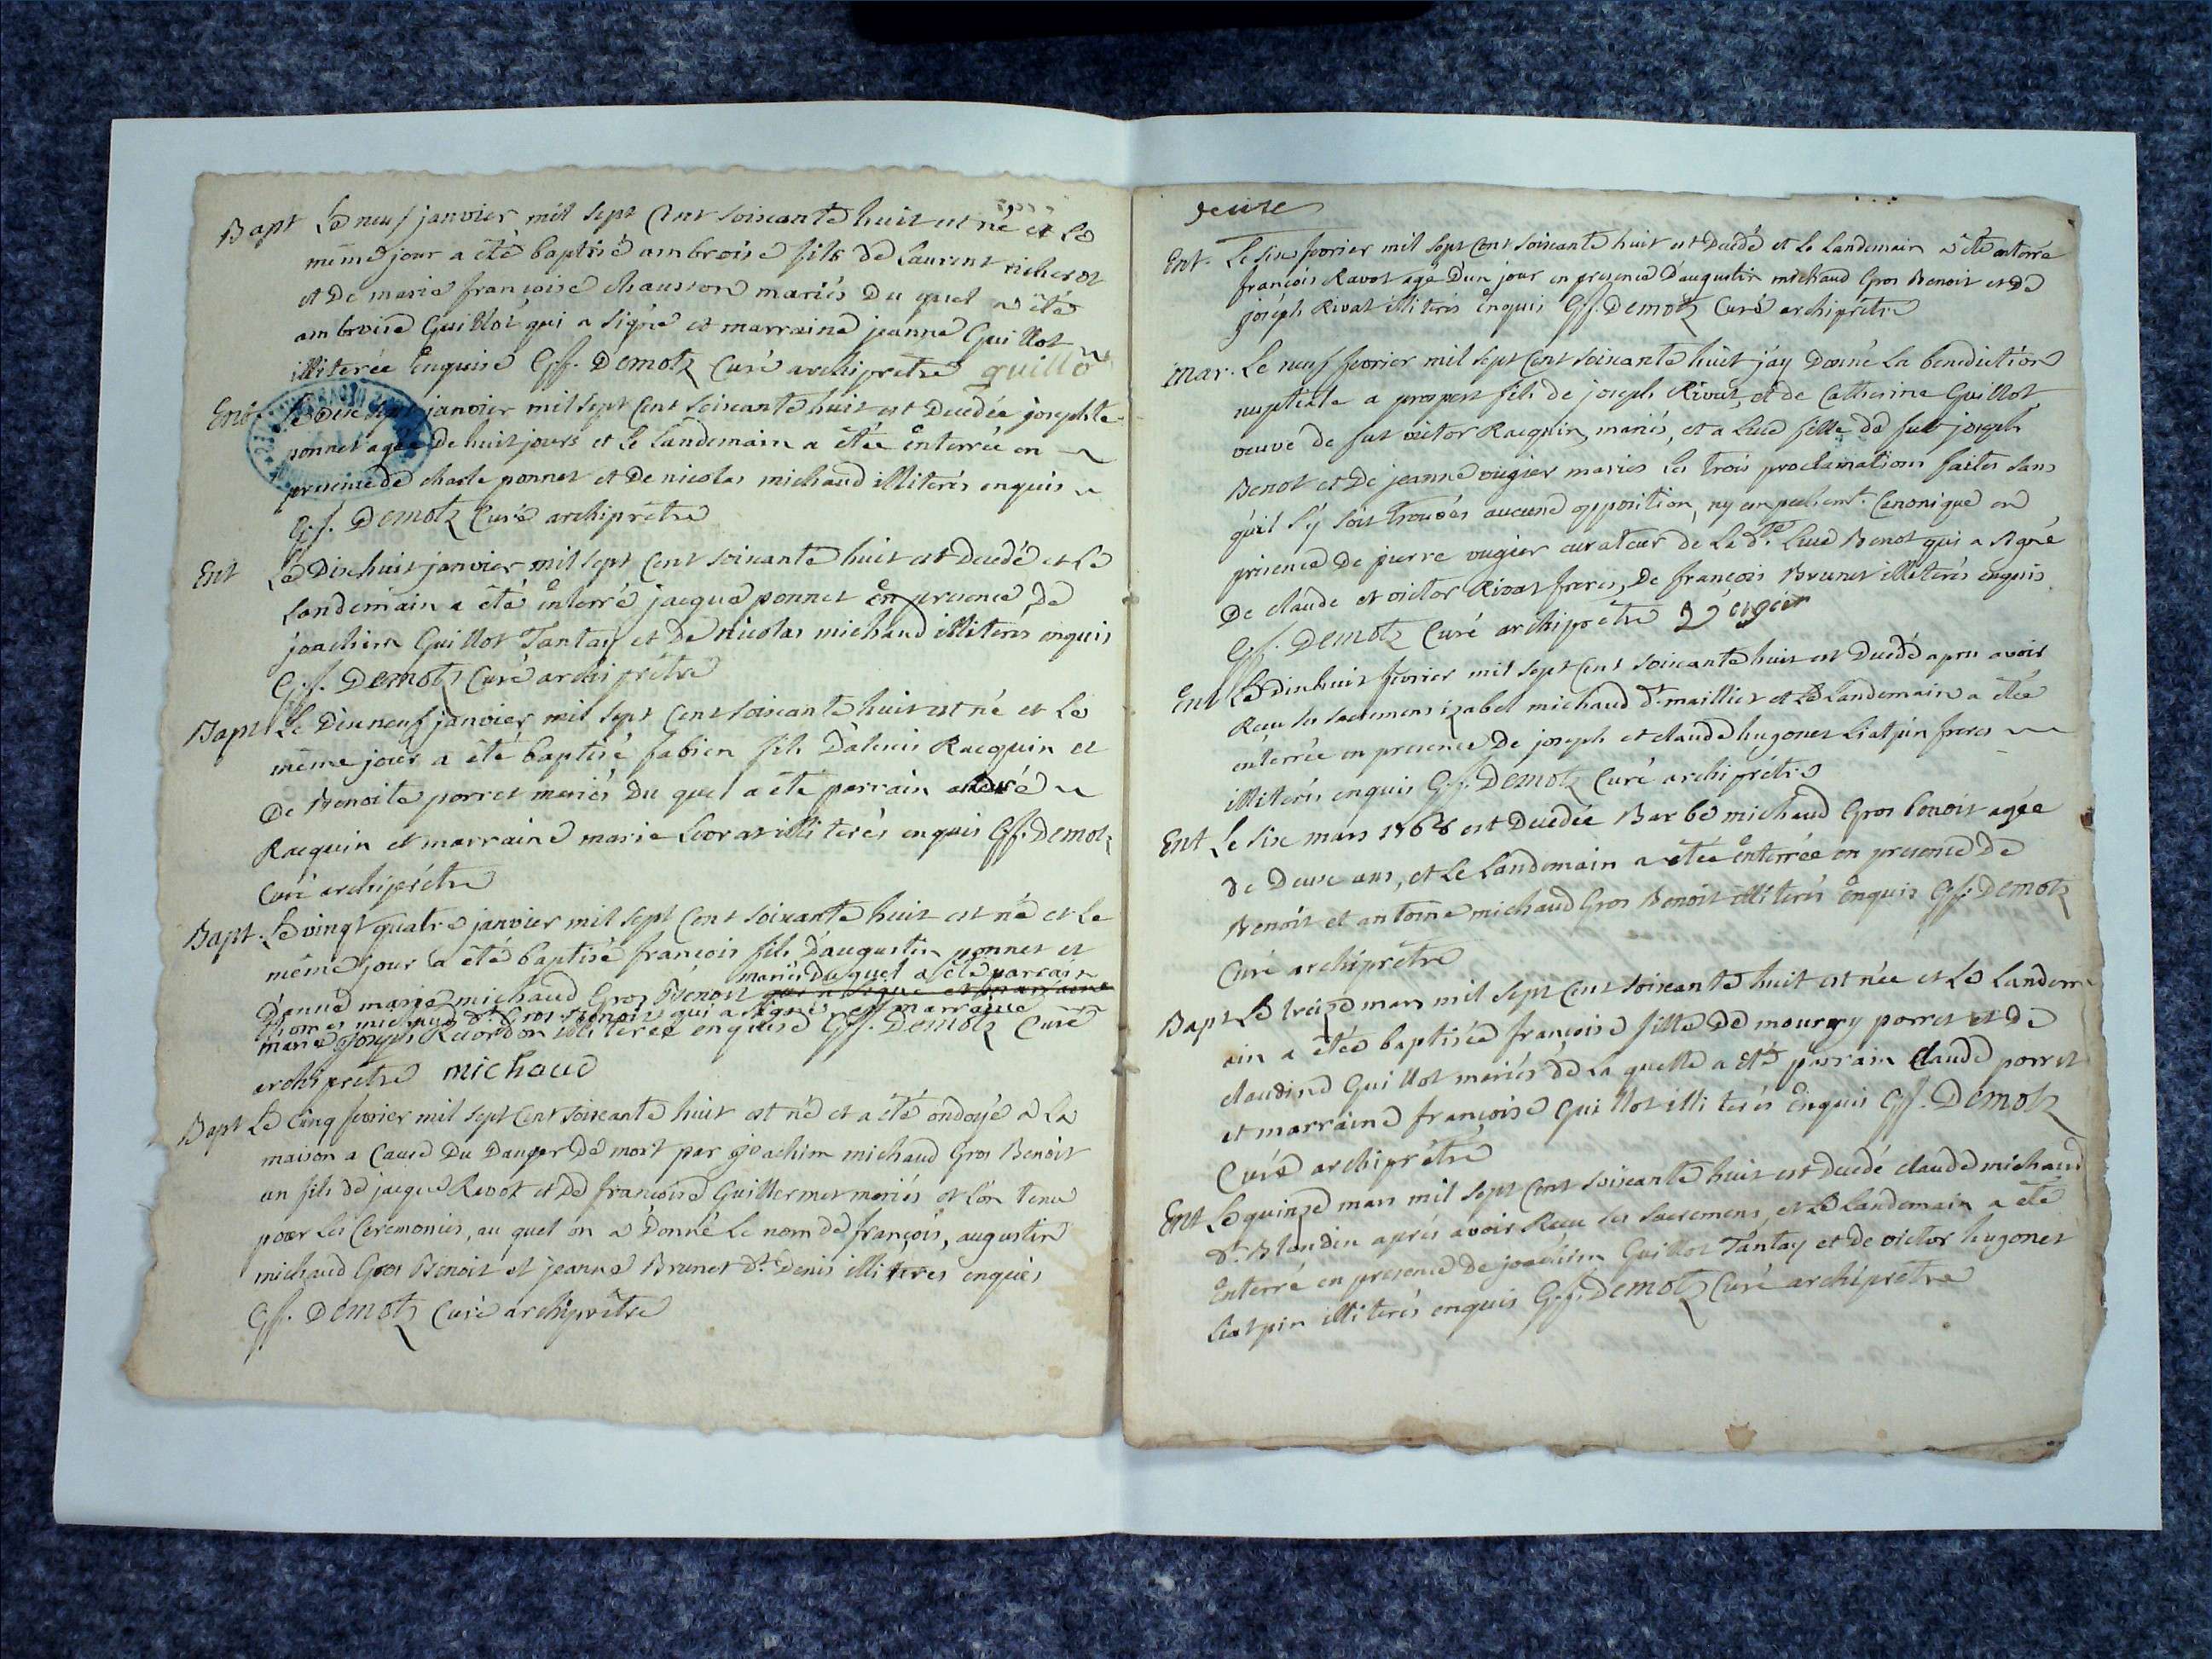 Bapt Le neuf janvier mil sept cent soixante huit est né et le
même jour a été baptisé ambroise fils de Laurent richerot
et de marie françoise chausson mariés du quel a été
ambroise Guillot qui a signé et marraine jeanne Guillot
illiterée enquise Gff. Demotz Curé archiprêtre guillo
Ent Le dix sept janvier mil sept cent soixante huit est decedée josephte
ponnet agée de huit jours et le landemain a étée enterrée en
presence de charle ponnet et de nicolas michaud illiterés enquis
Gff. Demotz Curé archiprêtre
Ent Le Dixhuit janvier mil sept cent soixante huit est decedé et le
Landemain a été enterré jacque ponnet en presence de
joachim Guillot Tantay et de nicolas michaud illiterés enquis
Gff. Demotz Curé archiprêtre
Bapt Le Dixneuf janvier mil sept cent soixante huit est né et le
même jour a été baptisé fabien fils d'alexis Racquin et
de Benoite porret mariés du quel a été parrain andré
Racquin et marraine marie illiterés enquis Gff. Demotz
Curé archiprêtre
Bapt. Le vingt quatre janvier mil sept cent soixante huit est né et le
même jour a été baptisé françois fils d'augustin ponnet et
mariés du quel a été parrain
d'anne marie michaud Gros Benoit qui a signé et marraine
thomas michaud dt Gros Benoit qui a signé et marraine
marie joseph Recordon illiterée enquise Gff. Demotz Curé
archiprêtre michaud
Bapt Le Cinq fevrier mil sept cent soixante huit est né et a été ondoyé a la
maison a cause du danger de mort par joachim michaud Gros Benoit
un fils de jacque Ravot et de françoise Guillermet mariés et l'on tenu
pour les ceremonies, au quel on a donné le nom de françois, augustin
michaud Gros Benoit et jeanne Brunet dt Denis illiteres enquis
Gff. Demotz Curé archiprêtre
deuxe
Ent. Le six fevrier mil sept cent soixante huit est decedé et le landemain a été enterré
françois Ravot agé d'un jour en presence d'augustin michaud Gros Benoit et de
joseph Rivat illiterés enquis Gff. Demotz Curé archiprêtre
mar. Le neuf fevrier mil sept cent soixante huit j'ay donné la benediction
nuptiale a prospert fils de joseph Rivat, et de Catherine Guillot
veuve de fut victor Racquin, mariés, et a Luce fille de fut joseph
Benot et de jeanne vugier mariés les trois proclamations faites sans
qu'il s'y soit trouvés aucune opposition, ny empechent. Canonique en
presence de pierre vugier curateur de la de Luce Benot qui a signé
de claude et victor Rivat freres, de françois Brunet illiterés enquis
Gff. Demotz Curé archiprêtre
Ent Le dixhuit fevrier mil sept cent soixante huit est decedé apres avoir
Recu les sacremens izabel michaud dt maillet et le landemain a étée
enterrée en presence de joseph et claude hugonet Liatpin freres
illiterés enquis Gff. Demotz Curé archiprêtre
Ent Le six mars 1768 est decedée Barbe michaud Gros benoit agée
de deuxe ans, et le landemain a étée enterrée en presence de
Benoit et antoine michaud Gros Benoit illiterés enquis Gff. Demotz
Curé archiprêtre
Bapt Le treize mars mil sept cent soixante huit est née et le landem
ain a étée baptisée françoise fille de mourizy porret et de
claudine Guillot mariés de la quelle a été parrain claude porret
et marraine françoise Guillot illiterés enquis Gff. Demotz
Curé archiprêtre
Ent Le quinze mars mil sept cent soixante huit est decedé claude michaud
dt Blondin aprés avoir Recu les sacremens, et le landemain a été
Enterré en presence de joachim Guillot Tantay et de victor hugonet
Liatpin illiterés enquis Gff. Demotz Curé archiprêtre